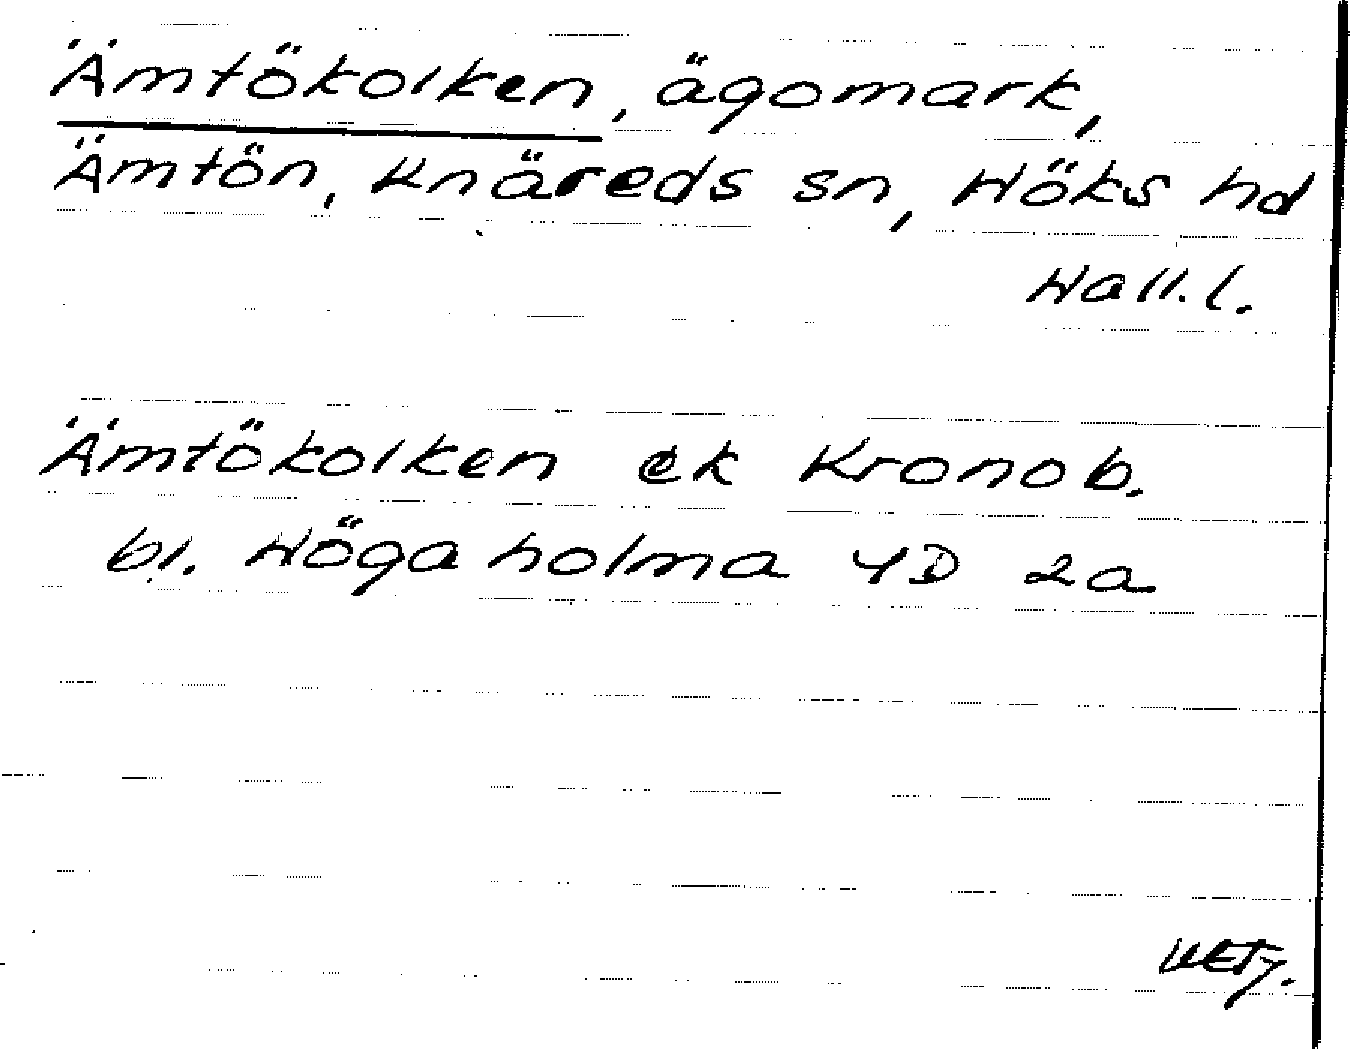 Ämtökolken, ägomark,
Ämtön, Knäreds sn, Höks hd
Hall. l.
Ämtökolken ek Kronob.
bl. Höga holma 4D 2a